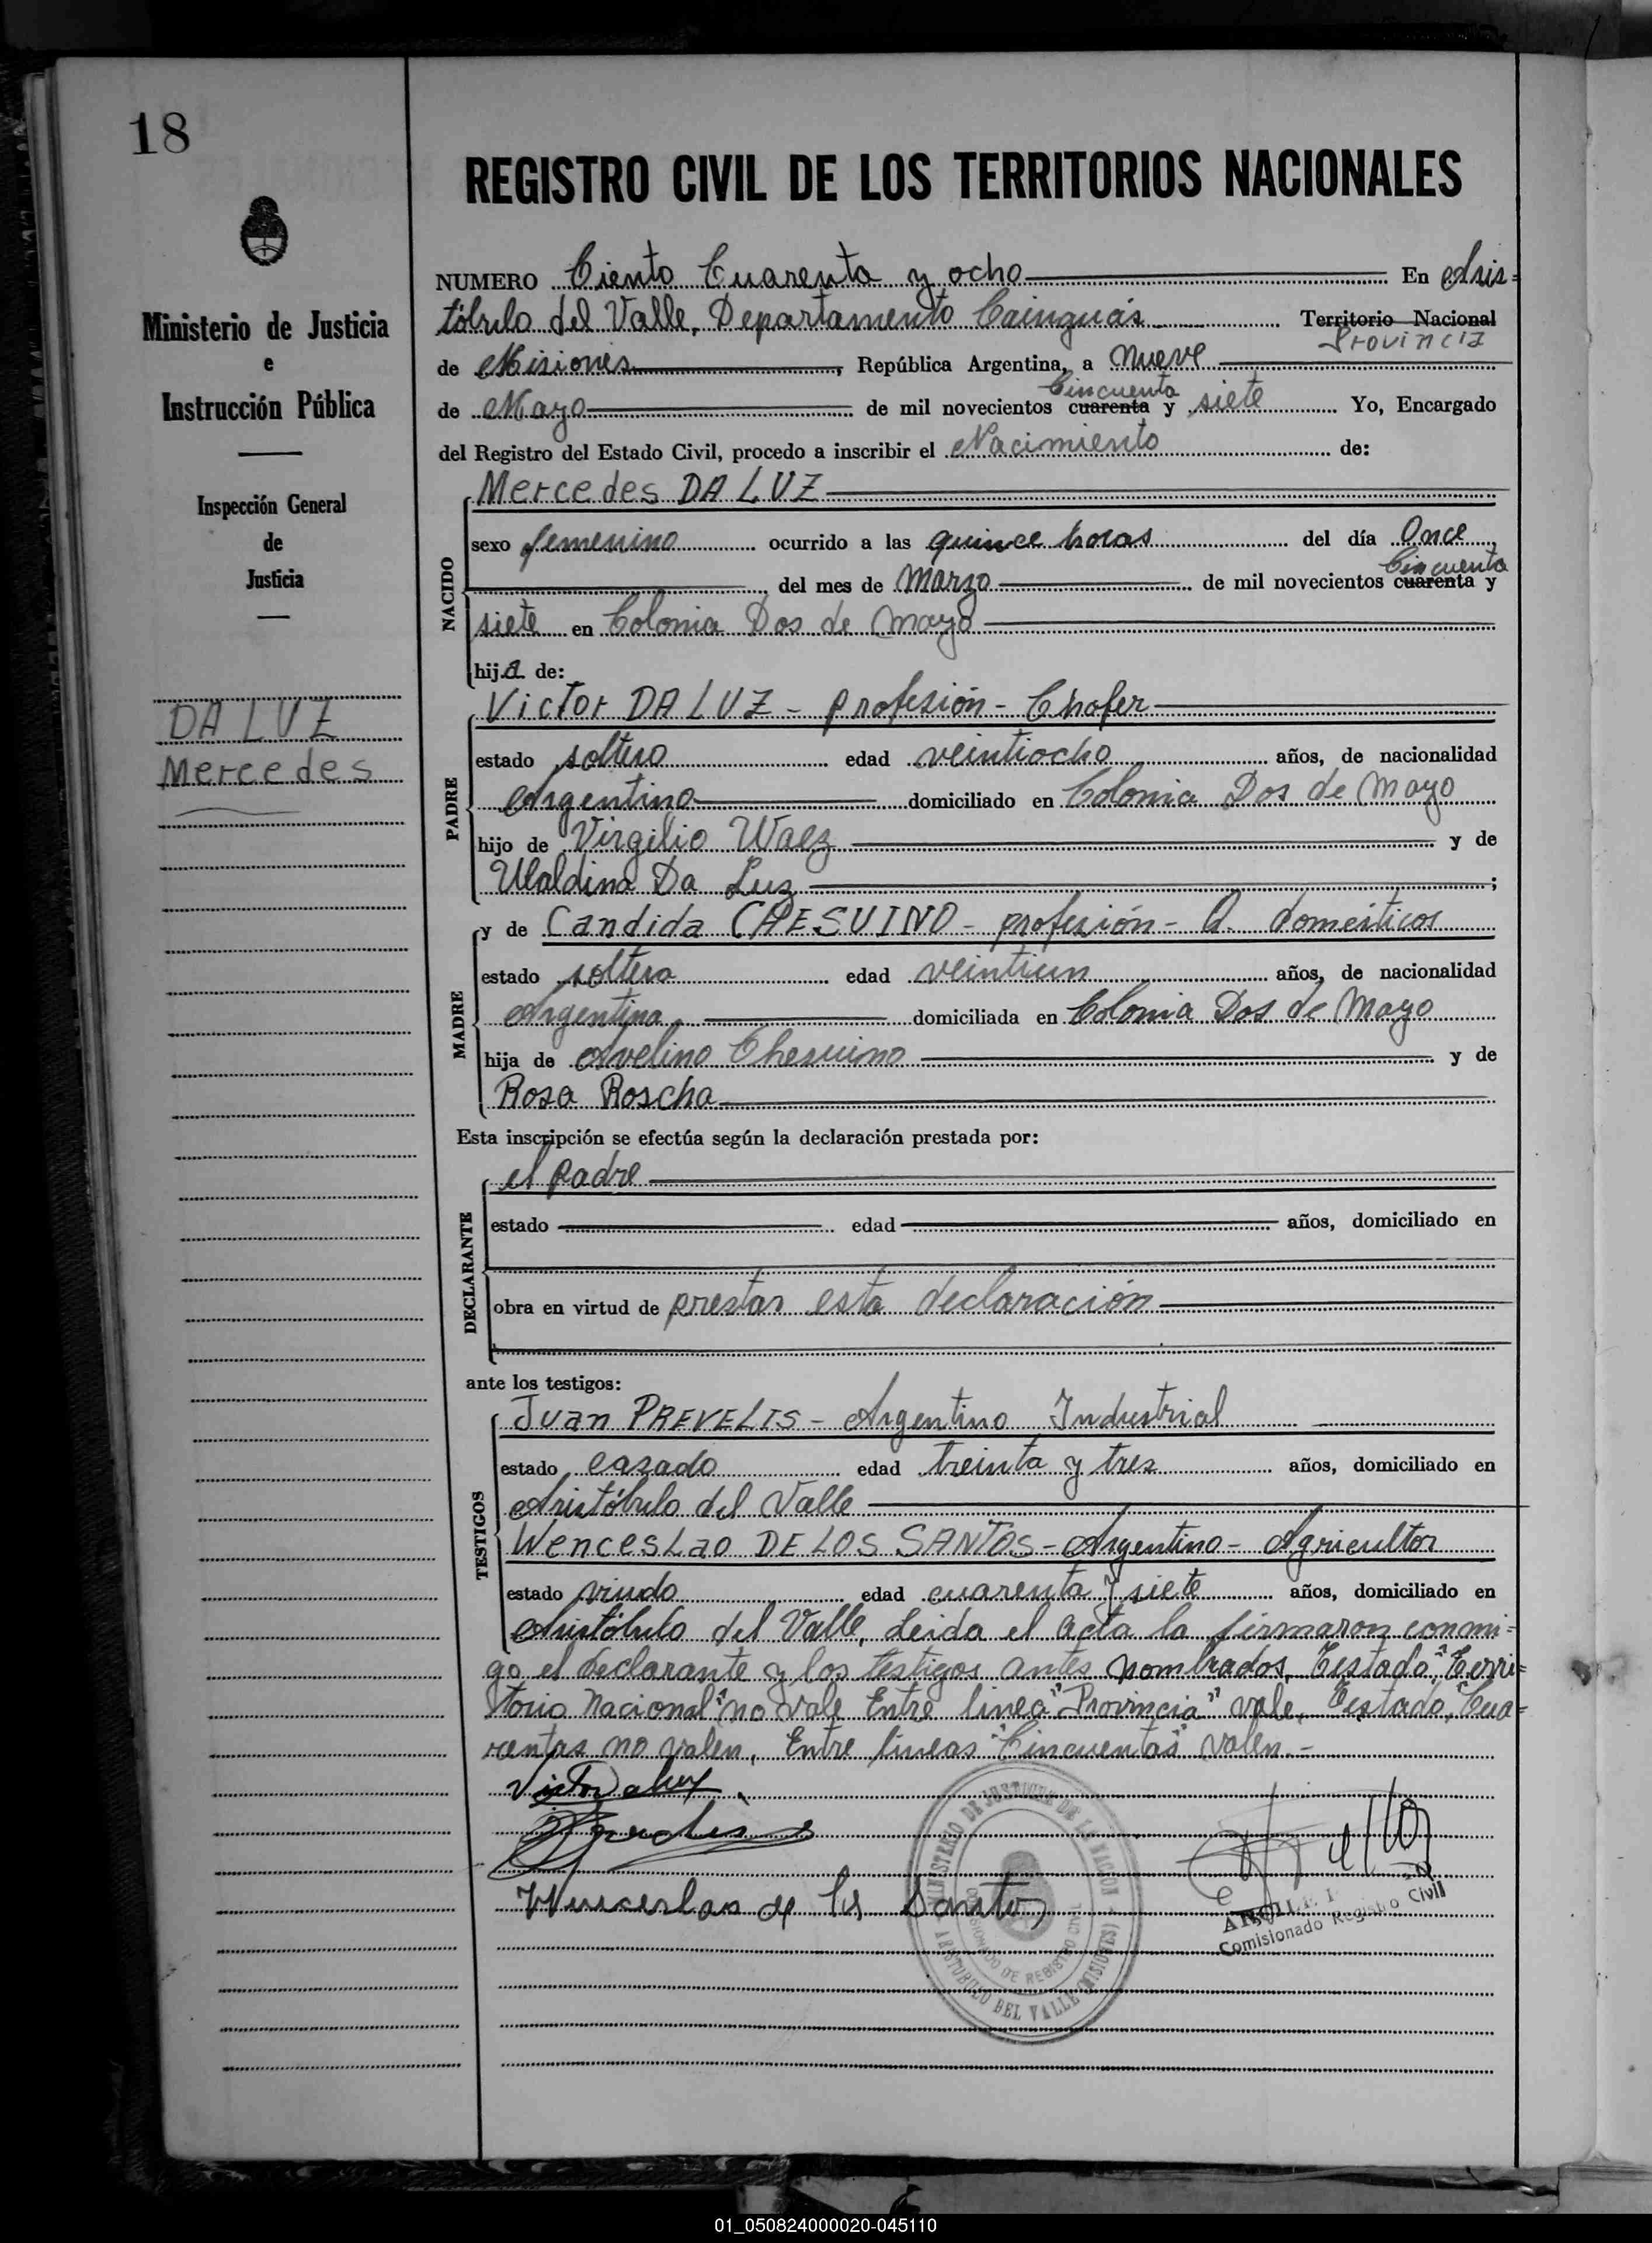 18
REGISTRO CIVIL DE LOS TERRITORIOS NACIONALES
Ministerio de Justicia
e
Instrucción Pública
Inspección General
de
Justicia
DA LUZ
Mercedes
NUMERO Ciento Cuarenta y ocho En Aris=
tóbulo del Valle, Departamento Cainguás Territorio Nacional
Provincia
de Misiones, República Argentina, a nueve
Cincuenta
de Mayo de mil novecientos cuarenta y siete Yo, Encargado
del Registro del Estado Civil, procedo a inscribir el Nacimiento de:
NACIDO
Mercedes DA LUZ
sexo femenino ocurrido a las quince horas del día Once
Cincuenta
del mes de Marzo de mil novecientos cuarenta y
siete en Colonia Dos de Mayo
hija de:
PADRE
Victor DA LUZ - profesión - Chofer
estado soltero edad veintiocho años, de nacionalidad
Argentino domiciliado en Colonia Dos de Mayo
hijo de Virgilio Waez y de
Ubaldina Da Luz ;
MADRE
y de Candida CHESUINO - profesión - Q. domésticos
estado soltera edad veintiun años, de nacionalidad
Argentina domiciliada en Colonia Dos de Mayo
hija de Avelino Chesuino y de
Rosa Roscha
Esta inscripción se efectúa según la declaración prestada por:
DECLARANTE
el padre
estado edad años, domiciliado en
obra en virtud de prestar esta declaración
ante los testigos:
TESTIGOS
Juan PREVELIS - Argentino Industrial
estado casado edad treinta y tres años, domiciliado en
Aristóbulo del Valle
Wenceslao DE LOS SANTOS - Argentino - Agricultor
estado viudo edad cuarenta y siete años, domiciliado en
Aristóbulo del Valle, Leida el acta la firmaron conmi=
go el declarante y los testigos antes nombrados, Testado, "Terri=
torio Nacional" no vale Entre linea "Provincia" vale, Testado, Cua=
rentas no valen, Entre lineas "Cincuentas" valen.-
Victor Da Luz
Wenceslao de los Santos
MINISTERIO DE JUSTICIA DE LA NACION
COMISIONADO DE REGISTRO CIVIL
ARISTOBULO DEL VALLE (MISIONES)
Comisionado Registro Civil
01_050824000020-045110